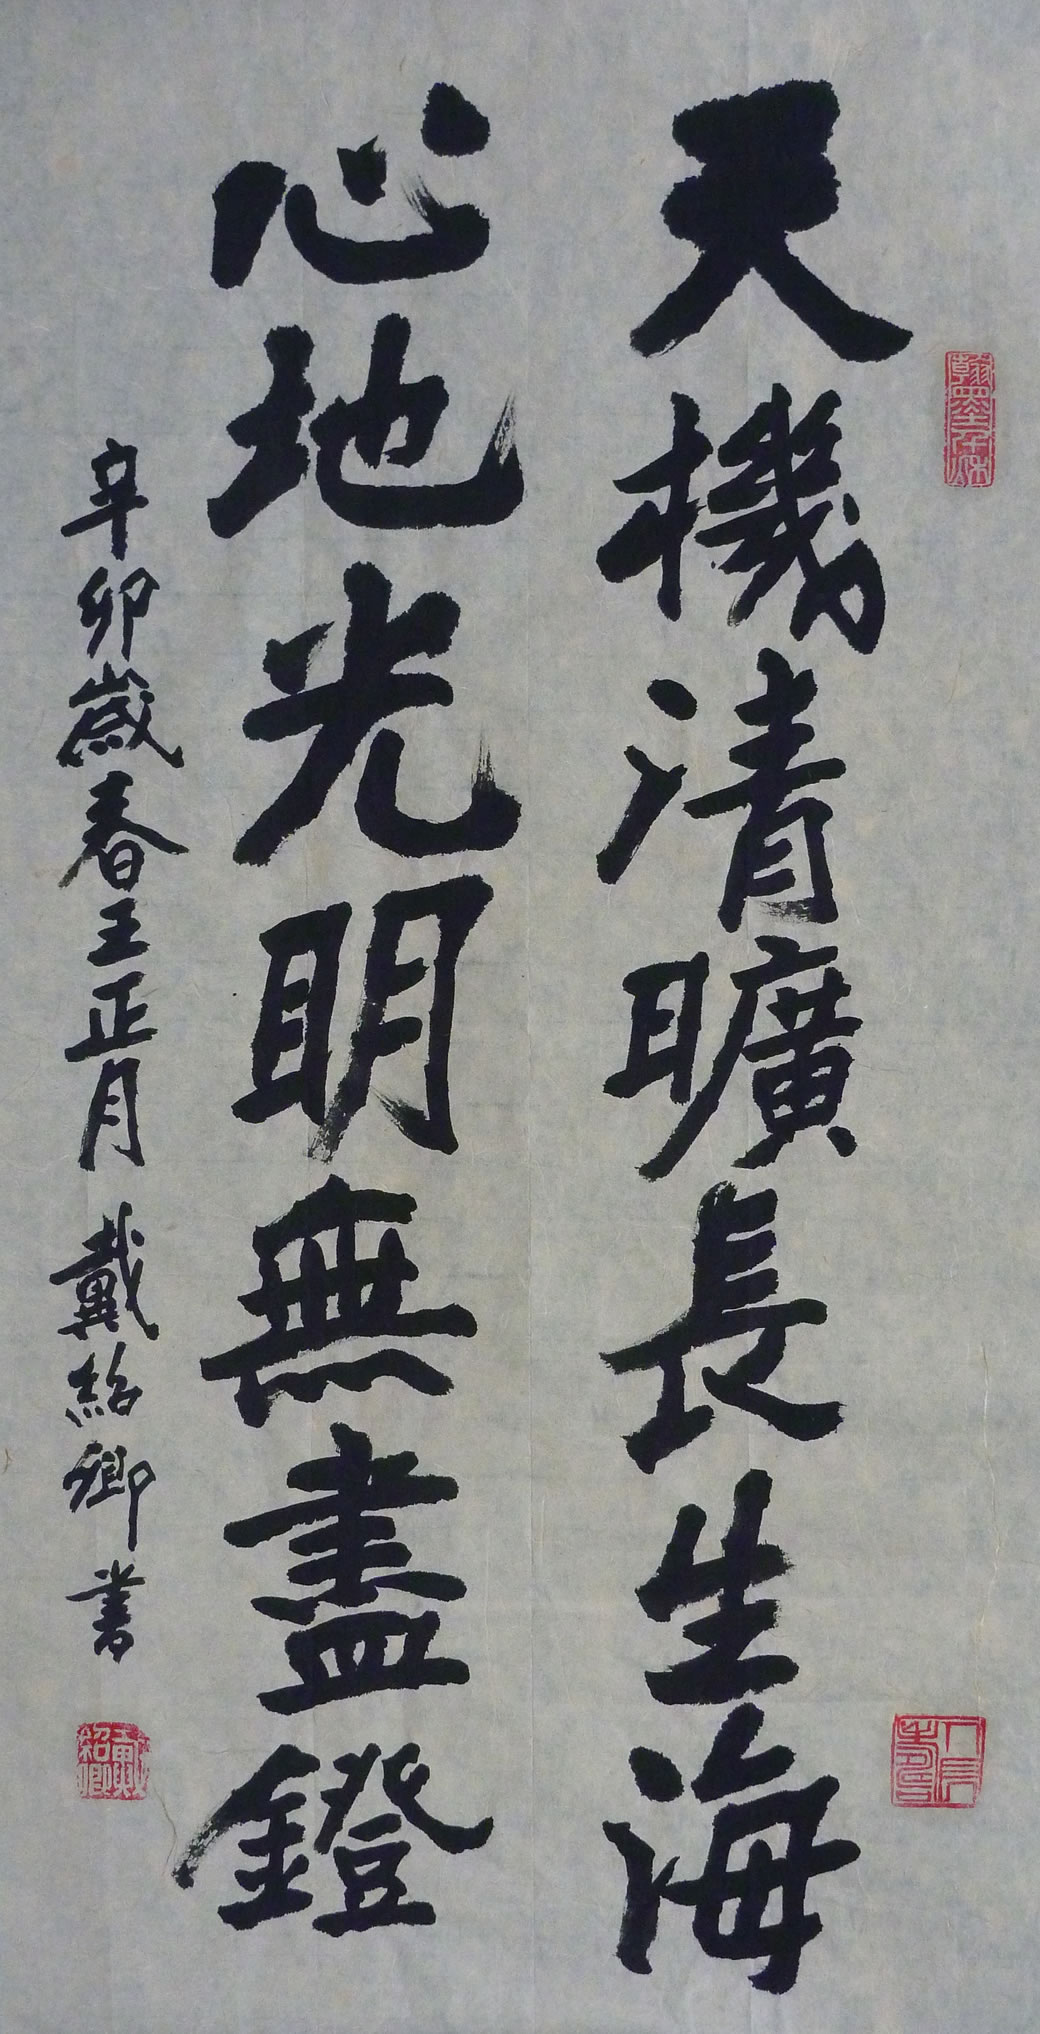 天機清曠長生海
心地光明無盡鐙
辛卯歲春王正月 戴紹卿書
翰墨千秋
戴紹卿